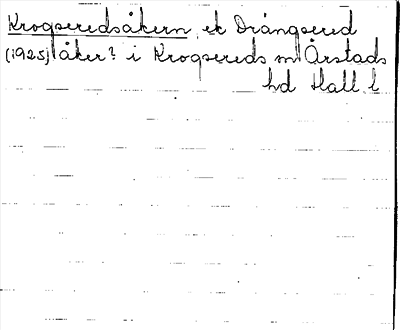 Krogseredsåkern ek Drängsered
(1925) åker? i Krogsereds sn Årstads
hd Hall. l